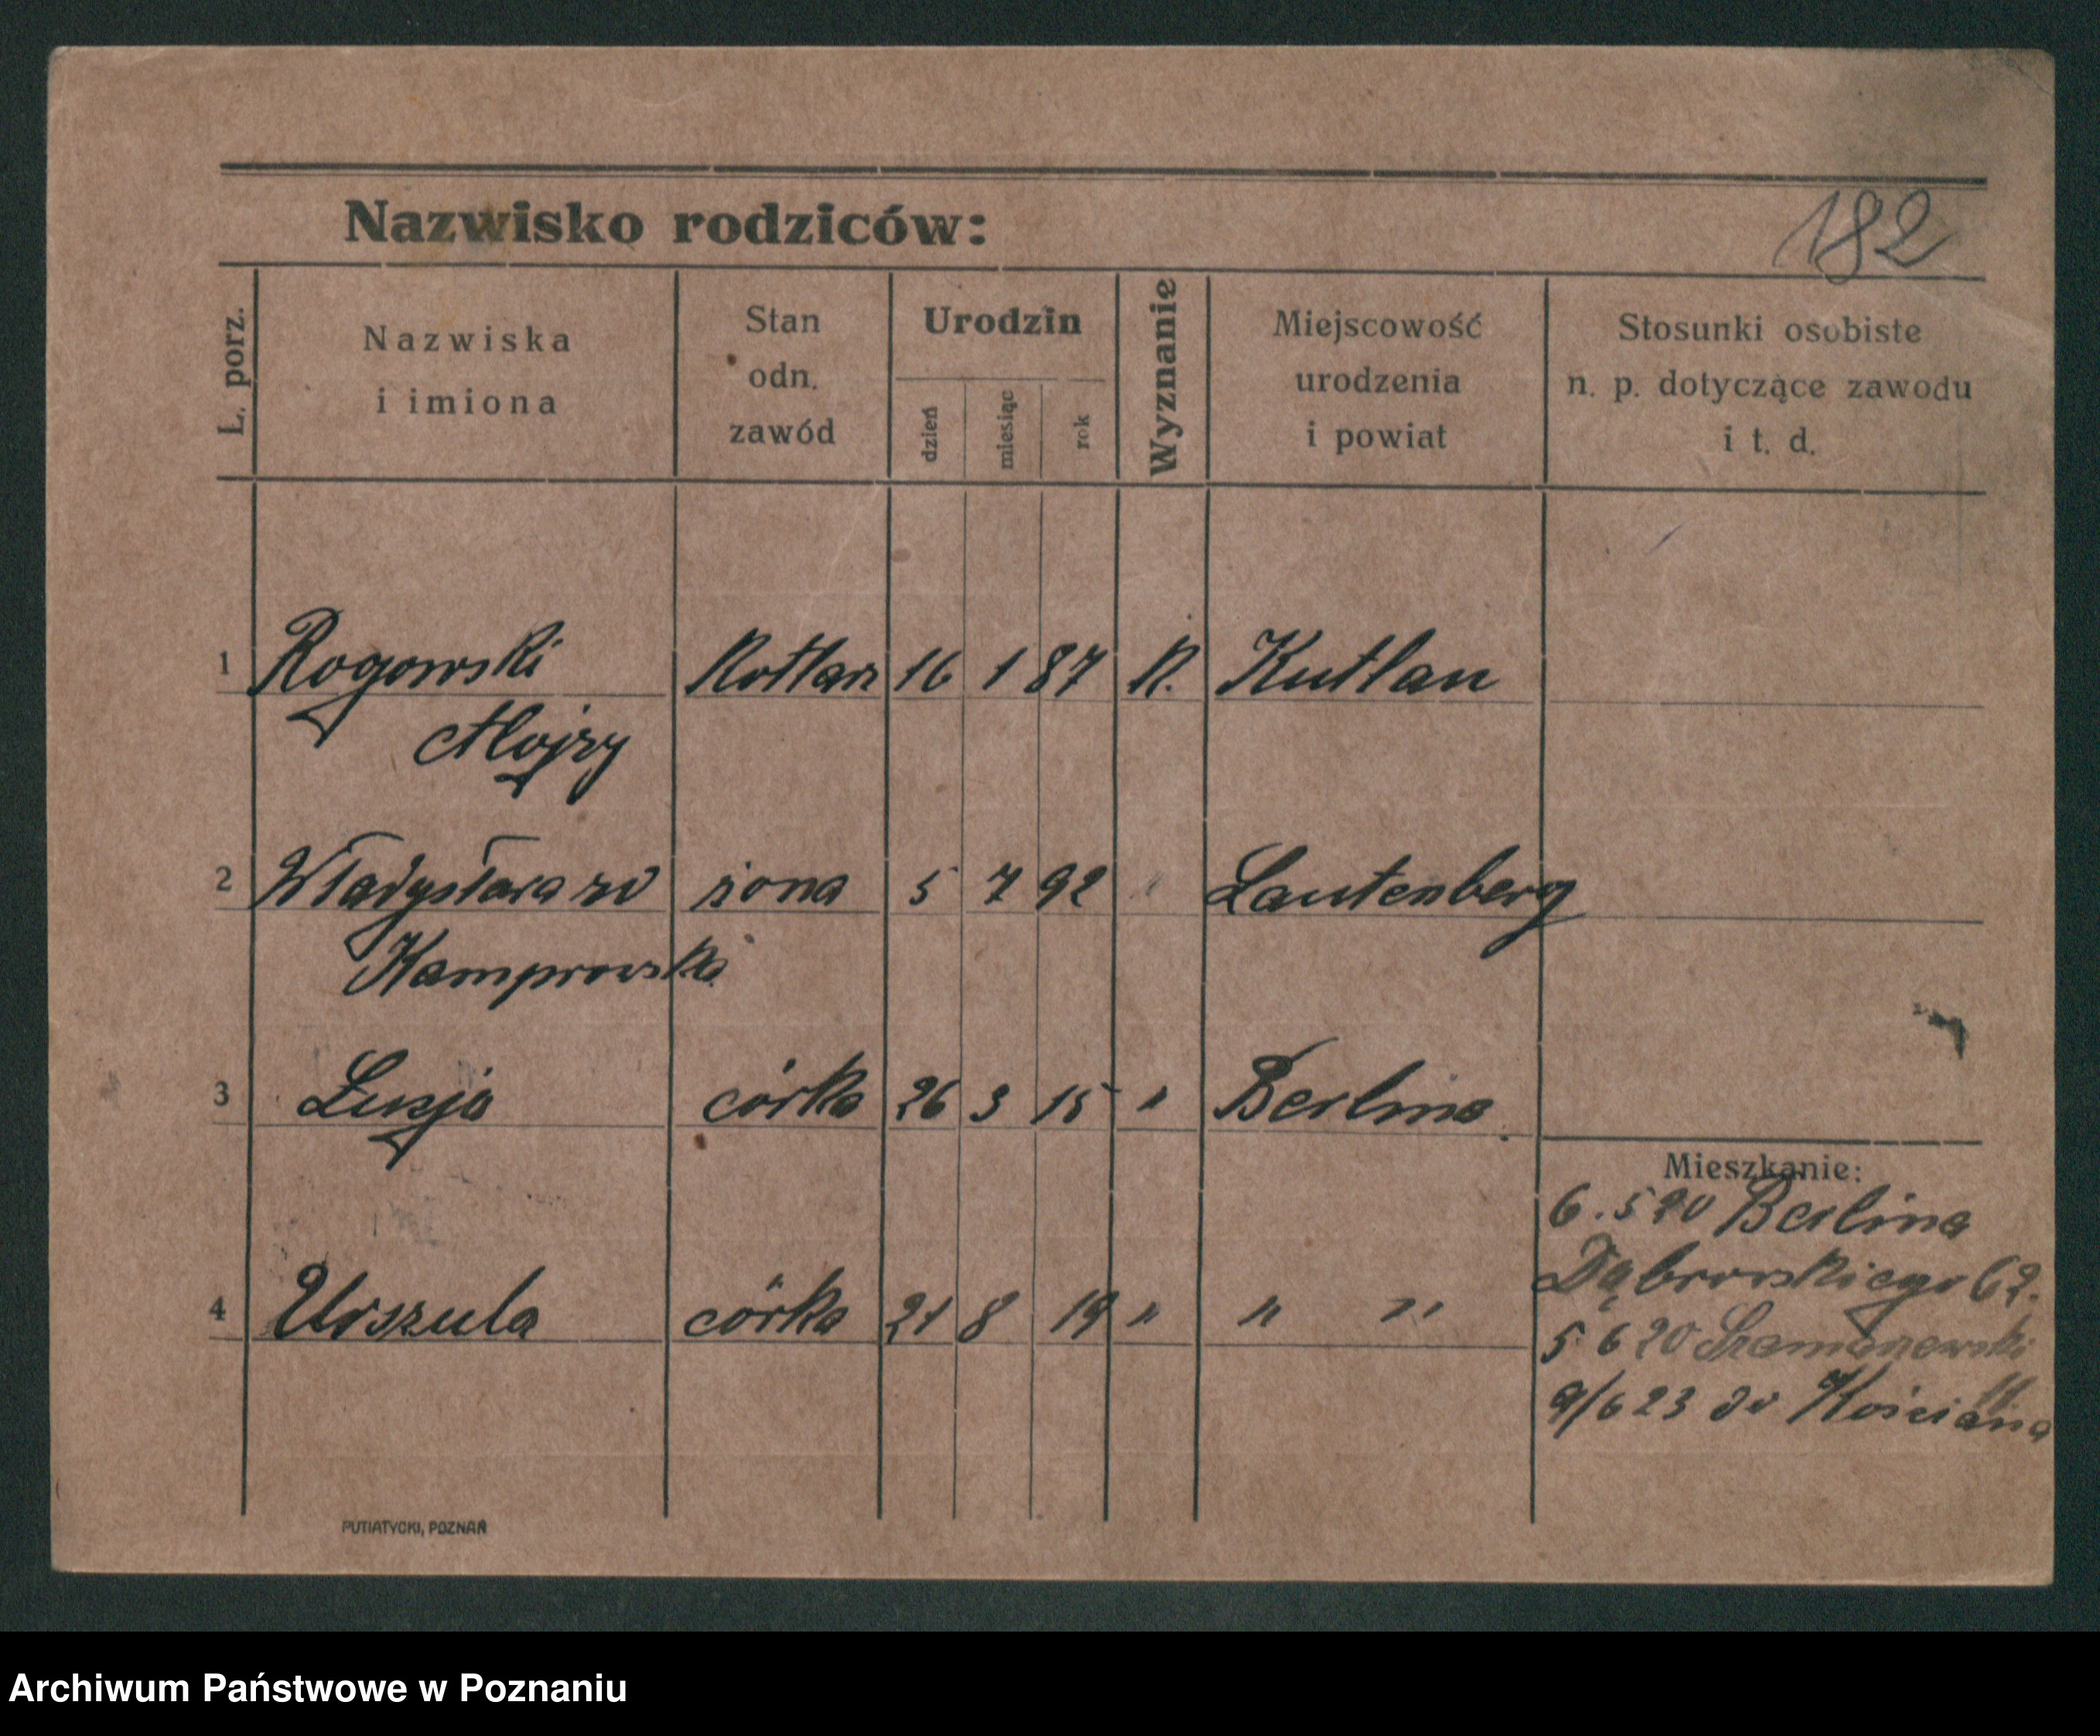 Nazwisko rodziców:
182
L. porz.
Nazwiska
i imiona
Stan
odn.
zawód
Urodzin
dzień
miesiąc
rok
Wyznanie
Miejscowość
urodzenia
i powiat
Stosunki osobiste
n. p. dotyczące zawodu
i t. d.
1 Rogowski Kotlarz 16 1 87 K. Kutlau
Alojzy
2 Władysława żona 5 7 92 " Lautenberg
Kamprowska
3 Łucja córka 26 3 15 " Berlina
4 Urszula córka 21 8 19 " " "
Mieszkanie:
6.5 20 Berlina
Dąbrowskiego 62.
5 6 20
9/6 23 do Kościana
PUTIATYCKI, POZNAŃ
Archiwum Państwowe w Poznaniu